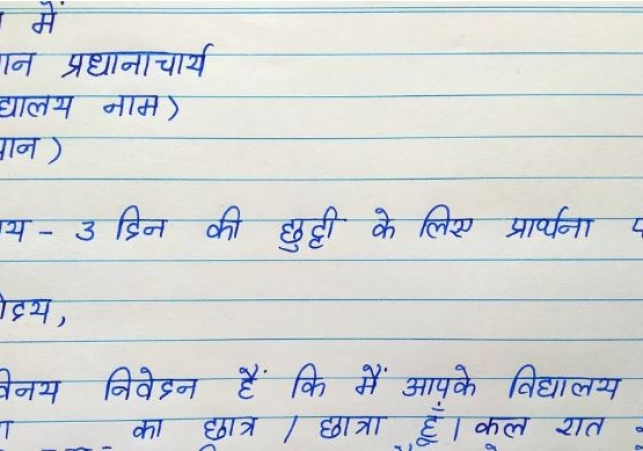 में
प्रधानाचार्य
नाम)
य - 3 दिन की छुट्टी के लिए प्रार्थना
निवेदन हैं कि मैं आपके विद्यालय
का छात्र / छात्रा हूँ। कल रात